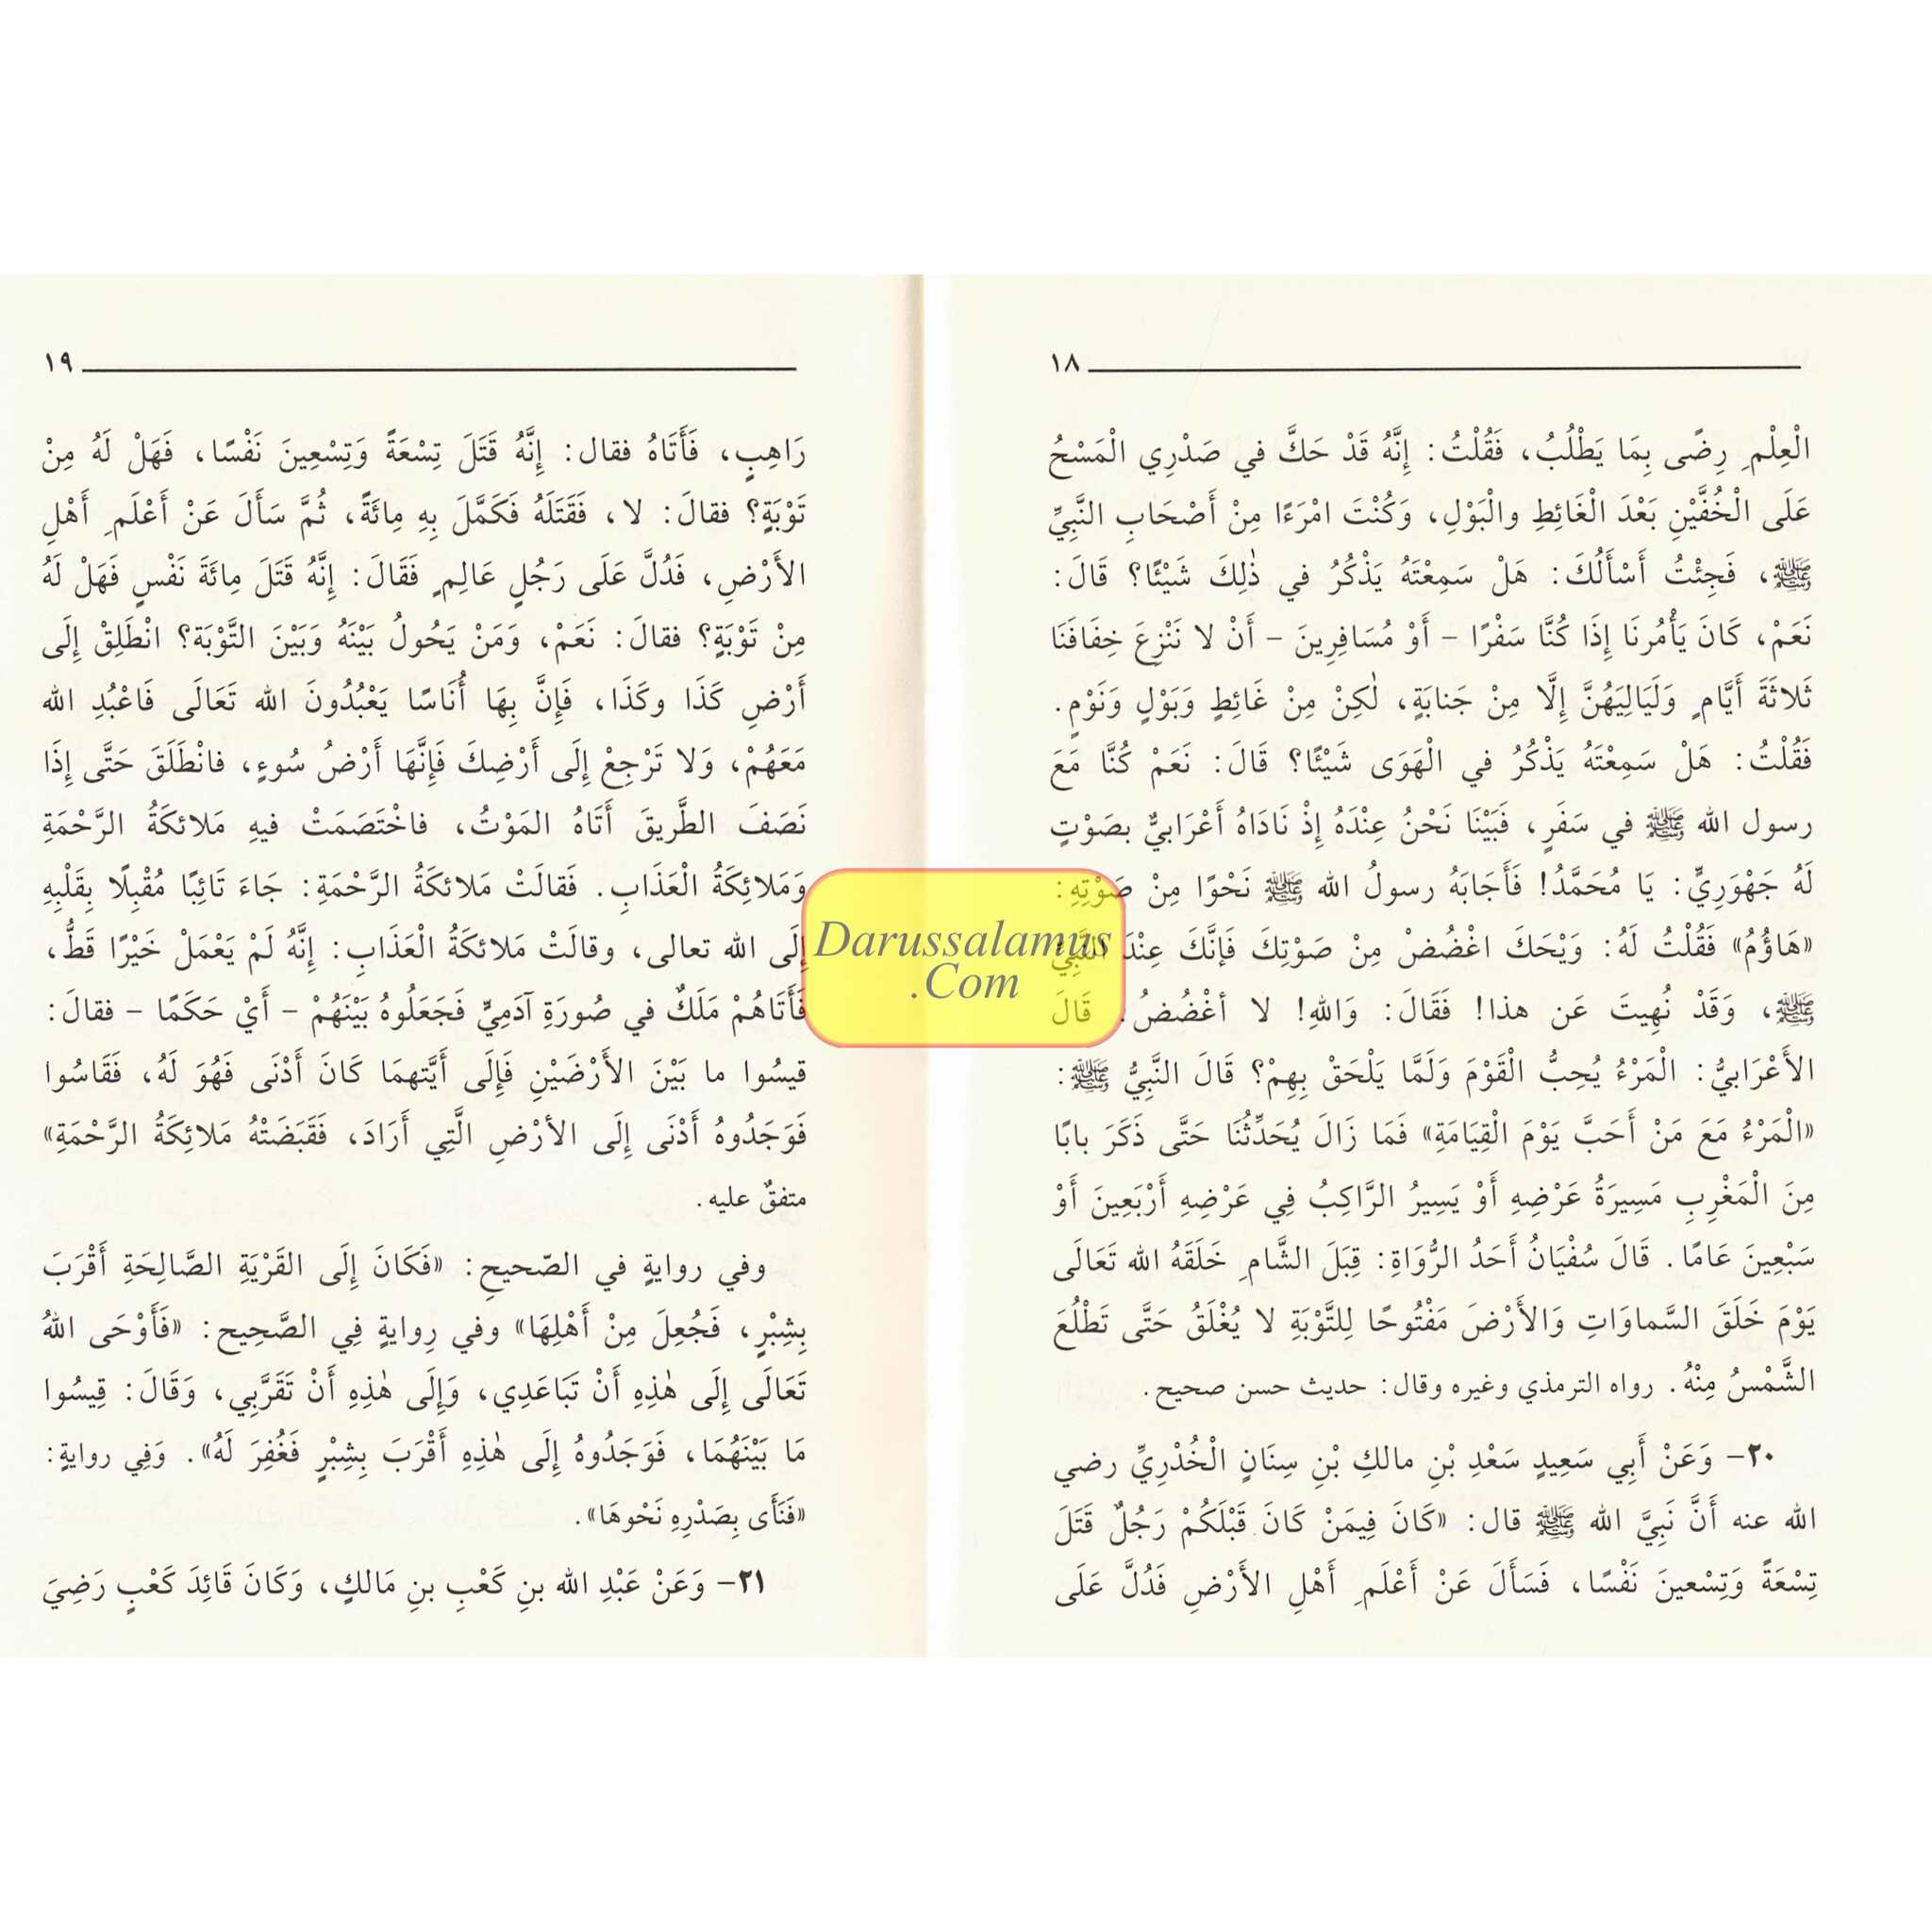 ١٨
الْعِلْمِ رِضًى بِمَا يَطْلُبُ، فَقُلْتُ: إِنَّهُ قَدْ حَكَّ في صَدْرِي الْمَسْحُ
عَلَى الْخُفَّيْنِ بَعْدَ الْغَائِطِ والْبَوْلِ، وَكُنْتَ امْرَءًا مِنْ أَصْحَابِ النَّبِيِّ
ﷺ، فَجِئْتُ أَسْأَلُكَ: هَلْ سَمِعْتَهُ يَذْكُرُ في ذٰلِكَ شَيْئًا؟ قَالَ:
نَعَمْ، كَانَ يَأْمُرنَا إِذَا كُنَّا سَفْرًا – أَوْ مُسَافِرِينَ – أَنْ لا نَنْزِعَ خِفَافَنَا
ثَلاثَةَ أَيَّامٍ وَلَيَالِيَهُنَّ إِلَّا مِنْ جَنابَةٍ، لٰكِنْ مِنْ غَائِطٍ وَبَوْلٍ وَنَوْمٍ.
فَقُلْتُ: هَلْ سَمِعْتَهُ يَذْكُرُ في الْهَوَى شَيْئًا؟ قَالَ: نَعَمْ كُنَّا مَعَ
رسول الله ﷺ في سَفَرٍ، فَبَيْنَا نَحْنُ عِنْدَهُ إِذْ نَادَاهُ أَعْرَابيٌّ بصَوْتٍ
لَهُ جَهْوَرِيٍّ: يَا مُحَمَّدُ! فَأَجَابَهُ رسولُ الله ﷺ نَحْوًا مِنْ صَوْتِهِ:
«هَاؤُمُ» فَقُلْتُ لَهُ: وَيْحَكَ اغْضُضْ مِنْ صَوْتِكَ فَإنَّكَ عِنْدَ النَّبِيِّ
ﷺ، وَقَدْ نُهِيتَ عَن هذا! فَقَالَ: وَاللهِ! لا أغْضُضُ. قَالَ
الأَعْرَابيُّ: الْمَرْءُ يُحِبُّ الْقَوْمَ وَلَمَّا يَلْحَقْ بِهِمْ؟ قَالَ النَّبِيُّ ﷺ:
«الْمَرْءُ مَعَ مَنْ أَحَبَّ يَوْمَ الْقِيَامَةِ» فَمَا زَالَ يُحَدِّثُنَا حَتَّى ذَكَرَ بابًا
مِنَ الْمَغْرِبِ مَسِيرَةُ عَرْضِهِ أَوْ يَسِيرُ الرَّاكِبُ فِي عَرْضِهِ أَرْبَعِينَ أَوْ
سَبْعِينَ عَامًا. قَالَ سُفْيَانُ أَحَدُ الرُّوَاةِ: قِبَلَ الشَّامِ خَلَقَهُ الله تَعَالَى
يَوْمَ خَلَقَ السَّماوَاتِ وَالأَرْضَ مَفْتُوحًا لِلتَّوْبَةِ لا يُغْلَقُ حَتَّى تَطْلُعَ
الشَّمْسُ مِنْهُ. رواه الترمذي وغيره وقال: حديث حسن صحيح.
٢٠– وَعَنْ أَبِي سَعِيدٍ سَعْدِ بْنِ مالكِ بْنِ سِنَانٍ الْخُدْرِيِّ رضي
الله عنه أَنَّ نَبِيَّ الله ﷺ قال: «كَانَ فِيمَنْ كَانَ قَبْلَكُمْ رَجُلٌ قَتَلَ
تِسْعَةً وَتِسْعينَ نَفْسًا، فَسَأَلَ عَنْ أَعْلَمِ أَهْلِ الأَرْضِ فَدُلَّ عَلَى
١٩
رَاهِبٍ، فَأَتَاهُ فقال: إِنَّهُ قَتَلَ تِسْعَةً وَتِسْعِينَ نَفْسًا، فَهَلْ لَهُ مِنْ
تَوْبَةٍ؟ فقالَ: لا، فَقَتَلَهُ فَكَمَّلَ بِهِ مِائَةً، ثُمَّ سَأَلَ عَنْ أَعْلَمِ أَهْلِ
الأَرْضِ، فَدُلَّ عَلَى رَجُلٍ عَالِمٍ فَقَالَ: إِنَّهُ قَتَلَ مِائَةَ نَفْسٍ فَهَلْ لَهُ
مِنْ تَوْبَةٍ؟ فقالَ: نَعَمْ، وَمَنْ يَحُولُ بَيْنَهُ وَبَيْنَ التَّوْبَة؟ انْطَلِقْ إِلَى
أَرْضِ كَذَا وكَذَا، فَإِنَّ بِهَا أُنَاسًا يَعْبُدُونَ الله تَعَالَى فَاعْبُدِ الله
مَعَهُمْ، وَلا تَرْجِعْ إِلَى أَرْضِكَ فَإِنَّهَا أَرْضُ سُوءٍ، فانْطَلَقَ حَتَّى إِذَا
نَصَفَ الطَّريقَ أَتَاهُ المَوْتُ، فاخْتَصَمَتْ فيهِ مَلائكَةُ الرَّحْمَةِ
وَمَلائِكَةُ الْعَذَابِ. فَقالَتْ مَلائكَةُ الرَّحْمَةِ: جَاءَ تَائِبًا مُقْبِلًا بِقَلْبِهِ
إِلَى الله تعالى، وقالَتْ مَلائكَةُ الْعَذَابِ: إِنَّهُ لَمْ يَعْمَلْ خَيْرًا قَطُّ،
فَأَتَاهُمْ مَلَكٌ في صُورَةِ آدَمِيٍّ فَجَعَلُوهُ بَيْنَهُمْ – أَيْ حَكَمًا – فقالَ:
قيسُوا ما بَيْنَ الأَرْضَيْنِ فَإِلَى أَيَّتهمَا كَانَ أَدْنَى فَهُوَ لَهُ، فَقَاسُوا
فَوَجَدُوهُ أَدْنَى إِلَى الأرْضِ الَّتِي أَرَادَ، فَقَبَضَتْهُ مَلائِكَةُ الرَّحْمَةِ»
متفقٌ عليه.
وفي روايةٍ في الصّحيحِ: «فَكَانَ إِلَى القَرْيَةِ الصَّالِحَةِ أَقْرَبَ
بِشِبْرٍ، فَجُعِلَ مِنْ أَهْلِهَا» وفي رِوايةٍ فِي الصَّحِيح: «فَأَوْحَى اللهُ
تَعَالَى إِلَى هٰذِهِ أَنْ تَبَاعَدِي، وَإِلَى هٰذِهِ أَنْ تَقَرَّبِي، وَقَالَ: قِيسُوا
مَا بَيْنَهُمَا، فَوَجَدُوهُ إِلَى هٰذِهِ أَقْرَبَ بِشِبْرٍ فَغُفِرَ لَهُ». وَفِي روايةٍ:
«فَنَأَى بِصَدْرِهِ نَحْوهَا».
٢١– وَعَنْ عَبْدِ الله بنِ كَعْبِ بنِ مَالكٍ، وَكَانَ قَائِدَ كَعْبٍ رَضِيَ
Darussalamus
.Com